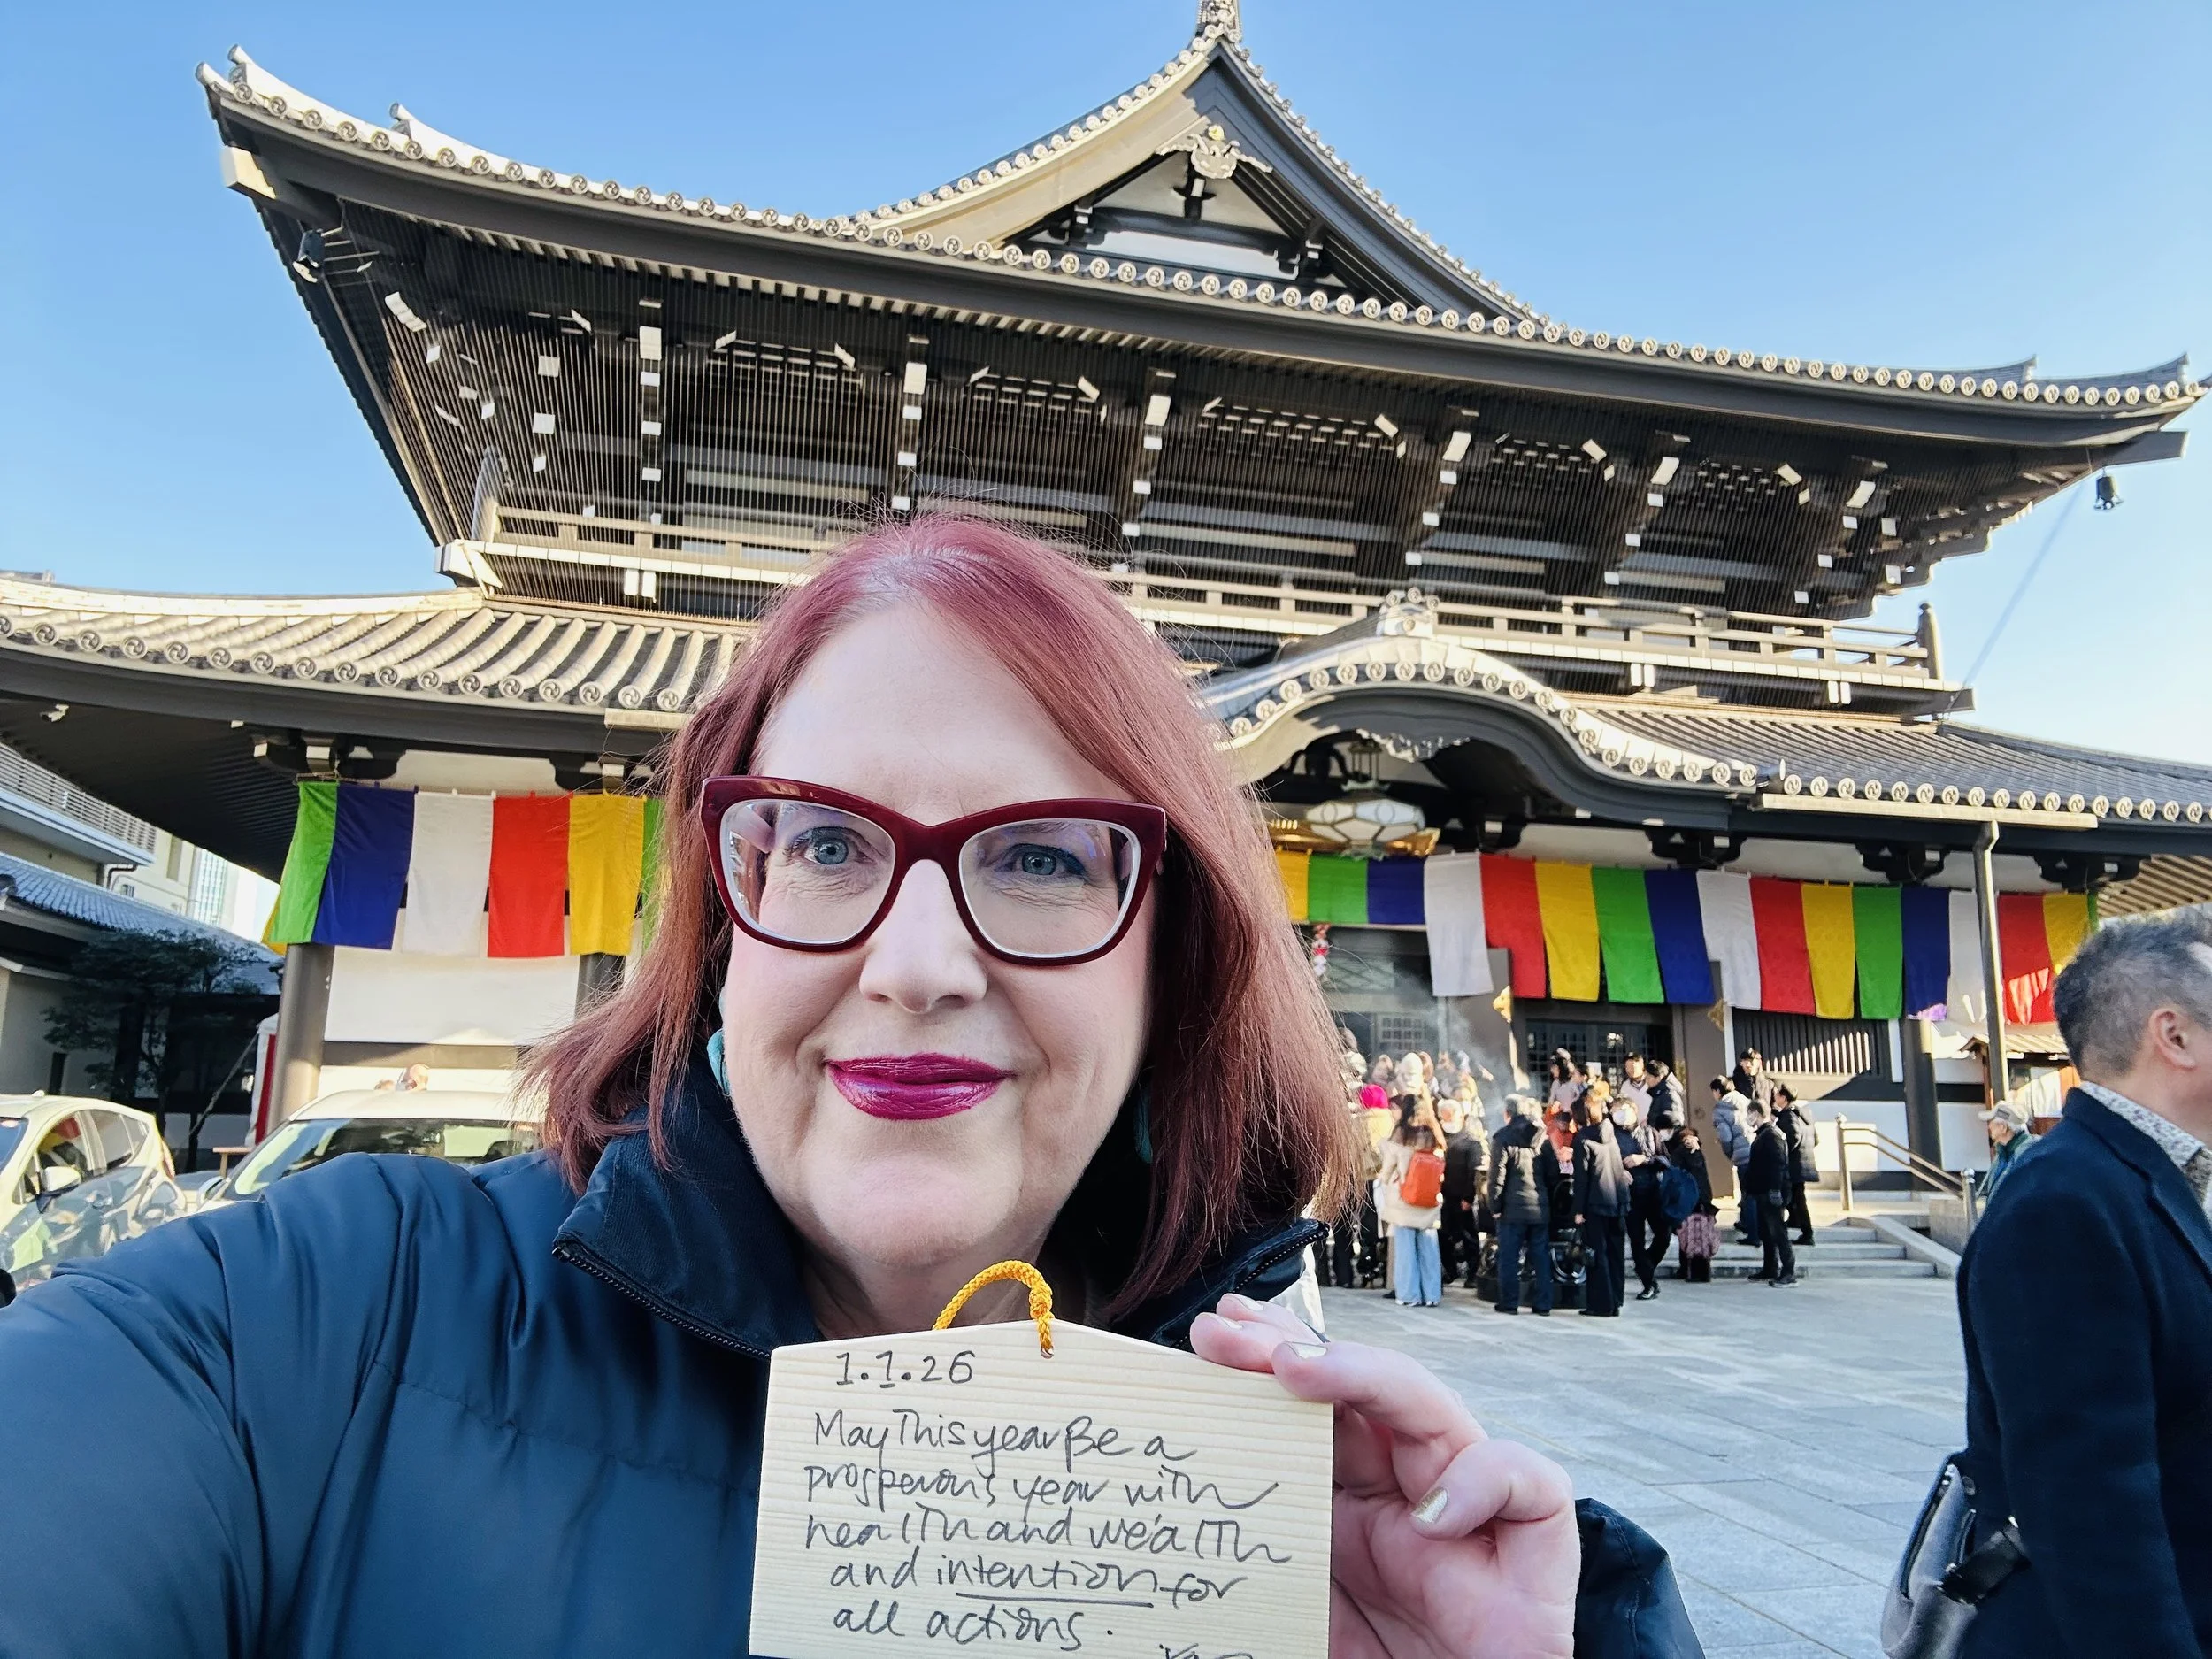 1.1.26
May This year Be a
prosperous year with
health and wealth
and intention for
all actions.